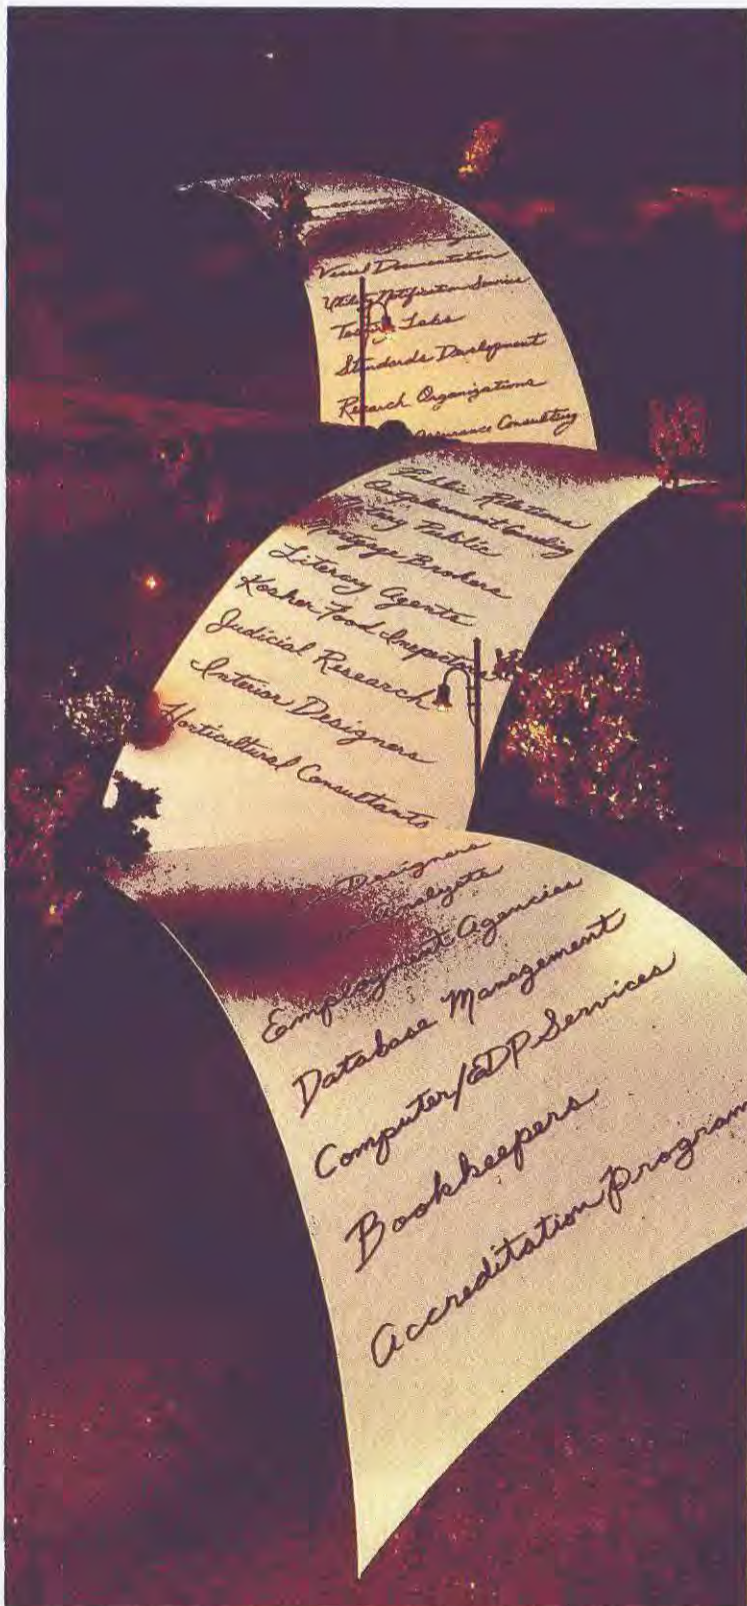 Visual Documentation
Utility Notification Service
Testing Labs
Standards Development
Research Organizations
Assurance Consulting
Public Relations
Outplacement Counseling
Notary Public
Mortgage Brokers
Literary Agents
Kosher Food Inspectors
Judicial Research
Interior Designers
Horticultural Consultants
Designers
Analysts
Employment Agencies
Database Management
Computer/EDP Services
Bookkeepers
Accreditation Program